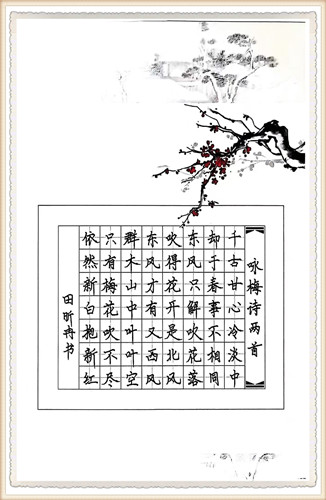 咏梅诗两首
千古甘心冷淡中
却于春事不相同
东风只解吹花落
吹得花开是北风
东风才有又西风
群木山中叶叶空
只有梅花吹不尽
依然新白抱新红
田昕冉节